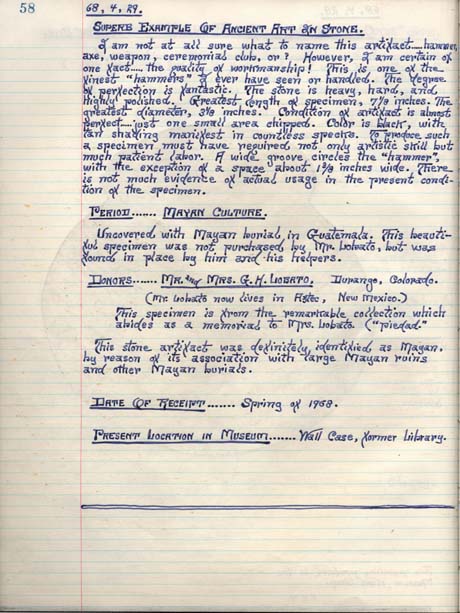 58
68, 4, 29.
Superb Example Of Ancient Art In Stone.
I am not at all sure what to name this artifact.....hammer,
axe, weapon, ceremonial club, or? However, I am certain of
one fact.....the quality of workmanship! This is one of the
finest "hammers" I ever have seen or handled. The degree
of perfection is fantastic. The stone is heavy, hard, and
highly polished. Greatest length of specimen, 7 1/8 inches. The
greatest diameter, inches. Condition of artifact is almost
perfect.....just one small area chipped. Color is black, with
tan shading manifest in countless specks. To produce such
a specimen must have required not only artistic skill but
much patient labor. A wide groove, circles the "hammer",
with the exception of a space about inches wide. There
is not much evidence of actual usage in the present condi-
tion of the specimen.
Period...... Mayan Culture.
Uncovered with Mayan burial in Guatemala. This beauti-
ful specimen was not purchased by Mr. Lobato, but was
found in place by him and his helpers.
Donors...... Mr. and Mrs. G. H. Lobato. Durango, Colorado.
(Mr. Lobato now lives in Aztec, New Mexico.)
This specimen is from the remarkable collection which
abides as a memorial to Mrs. Lobato ("Piedad."
This stone artifact was definitely identified as Mayan,
by reason of its association with large Mayan ruins
and other Mayan burials.
Date Of Receipt....... Spring of 1968.
Present Location in Museum....... Wall Case, former Library.